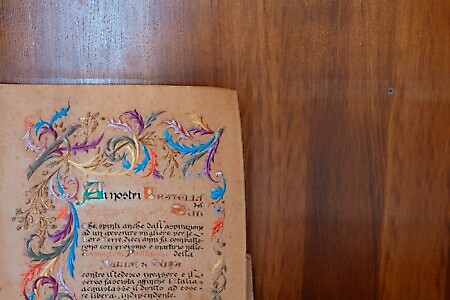 Ai nostri Fratelli
del
Sud
Che, spinti anche dall'aspirazione
ad un avvenire migliore per le
loro Terre, dieci anni fa combatte-
rono con eroismo e martirio nelle
formazioni partigiane della
Valle di Susa
contro il tedesco invasore e il
servo fascista affinché l'Italia
acquistasse il diritto ad esse-
re libera, indipendente,